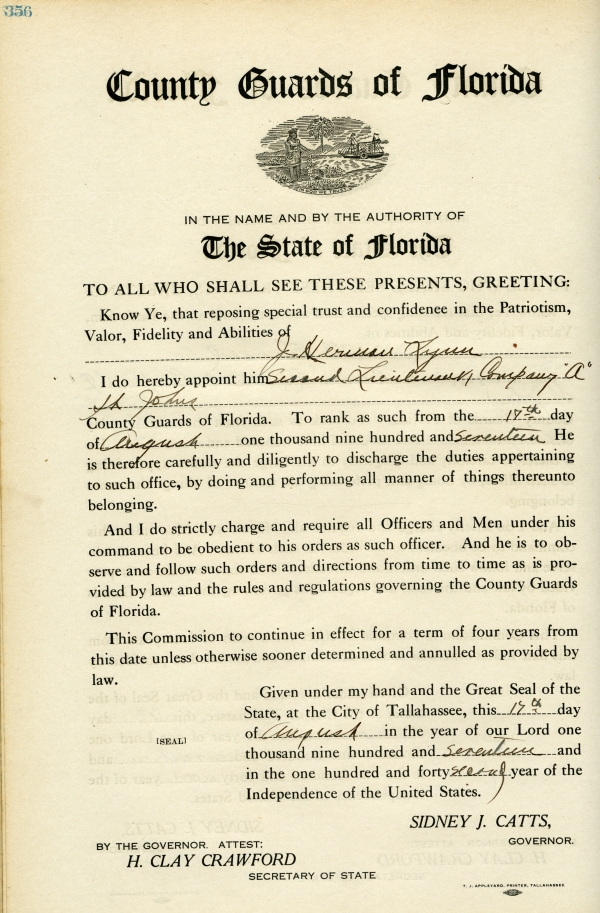 356
County Guards of Florida
IN THE NAME AND BY THE AUTHORITY OF
The State of Florida
TO ALL WHO SHALL SEE THESE PRESENTS, GREETING:
Know Ye, that reposing special trust and confidence in the Patriotism,
Valor, Fidelity and Abilities of
J. Herman Lynn
I do hereby appoint him Second Lieutenant, Company "A"
St Johns
County Guards of Florida. To rank as such from the 17th day
of August one thousand nine hundred and seventeen He
is therefore carefully and diligently to discharge the duties appertaining
to such office, by doing and performing all manner of things thereunto
belonging.
And I do strictly charge and require all Officers and Men under his
command to be obedient to his orders as such officer. And he is to ob-
serve and follow such orders and directions from time to time as is pro-
vided by law and the rules and regulations governing the County Guards
of Florida.
This Commission to continue in effect for a term of four years from
this date unless otherwise sooner determined and annulled as provided by
law.
Given under my hand and the Great Seal of the
State, at the City of Tallahassee, this 17th day
of August in the year of our Lord one
[SEAL]
thousand nine hundred and seventeen and
in the one hundred and forty second year of the
Independence of the United States.
SIDNEY J. CATTS,
GOVERNOR.
BY THE GOVERNOR. ATTEST:
H. CLAY CRAWFORD
SECRETARY OF STATE
T. J. APPLEYARD, PRINTER, TALLAHASSEE